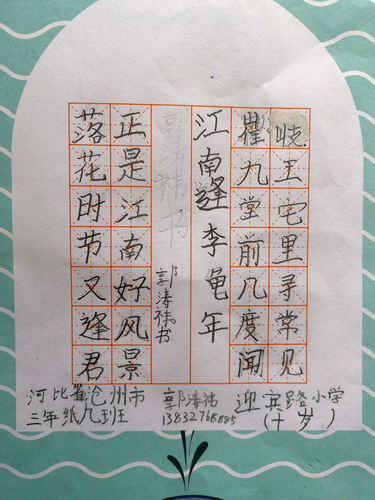 岐王宅里寻常见
催九堂前几度闻
江南逢李龟年
郭涛祎书
郭涛祎书
正是江南好风景
落花时节又逢君
河北省沧州市 郭涛祎 迎宾路小学
三年级九班 13832768885 (十岁)